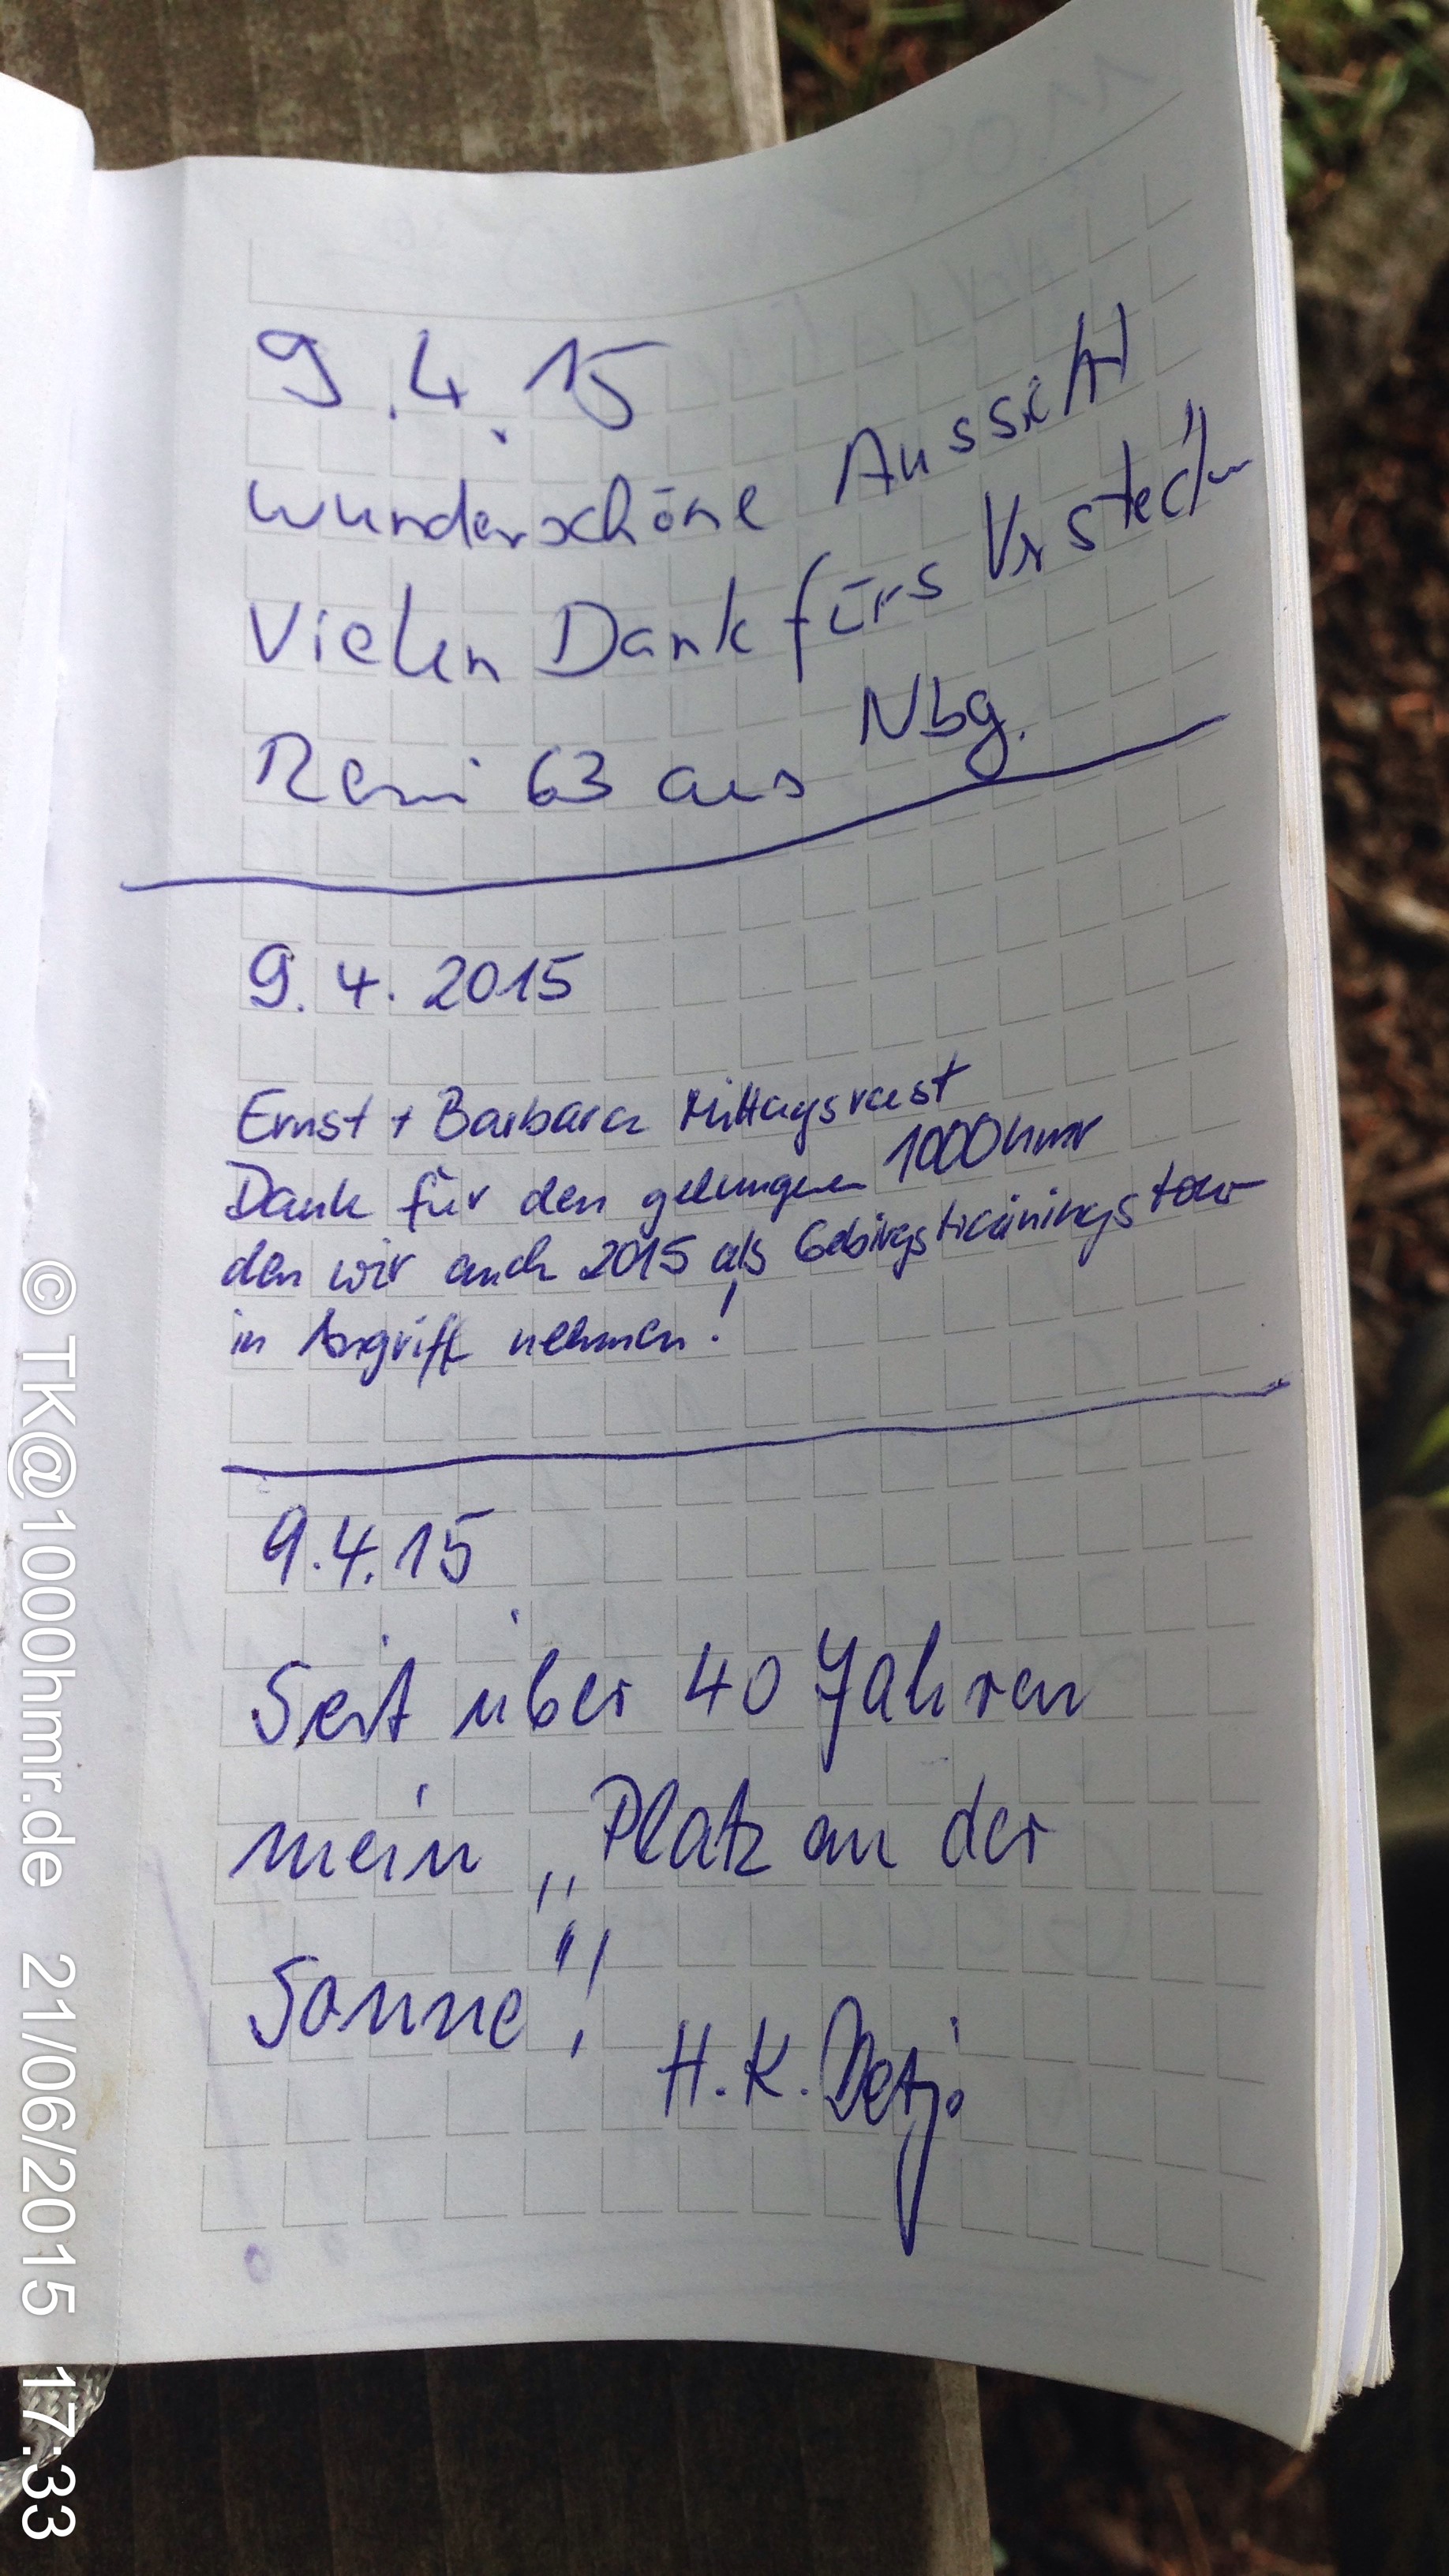 9.4.15
wunderschöne Aussicht
Vielen Dank fürs Verstecken
Reni 63 aus Nbg.
9.4.2015
Ernst + Barbara Mittagsrast
Dank für den gelungenen 1000hmr
den wir auch 2015 als Gebirgstrainingstour
in Angriff nehmen!
9.4.15
Seit über 40 Jahren
mein „Platz an der
Sonne"!
H.K.
© TK@1000hmr.de 21/06/2015 17:33